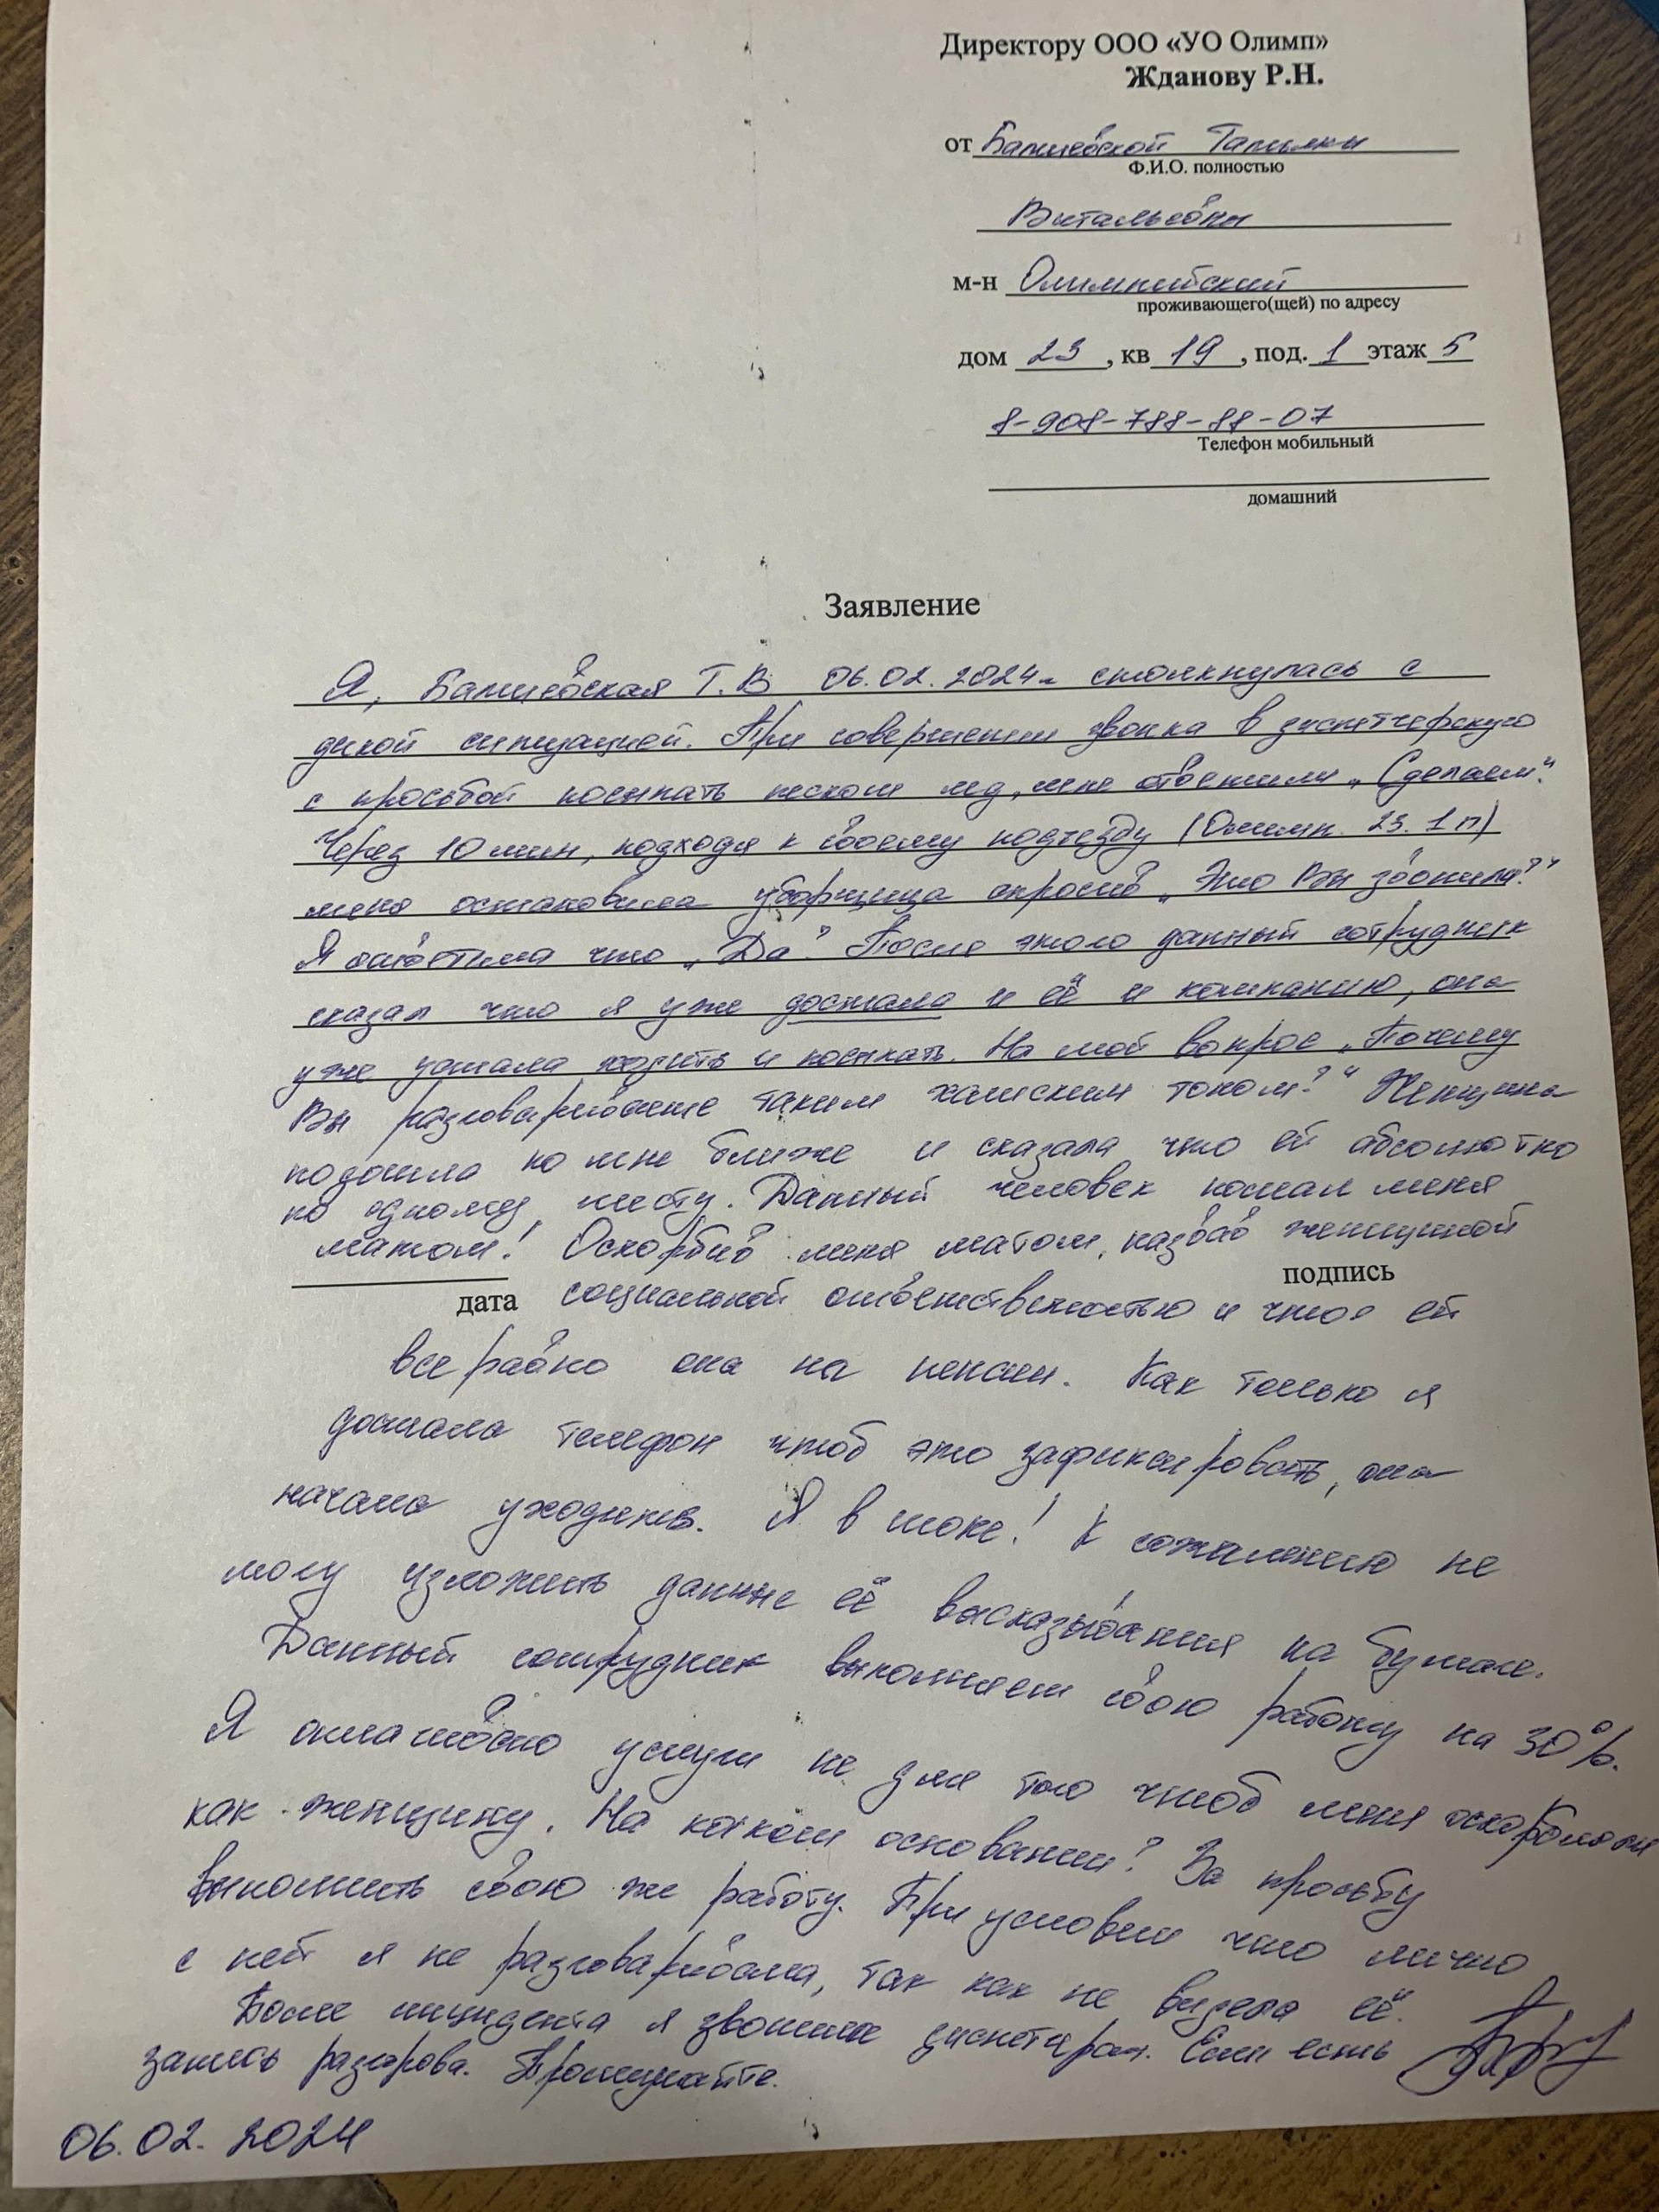 Директору ООО «УО Олимп»
Жданову Р.Н.
от Татьяны
Ф.И.О. полностью
Витальевны
м-н Олимпийский
проживающего(щей) по адресу
дом 23, кв 19, под. 1 этаж 5
8-908-788-88-07
Телефон мобильный
домашний
Заявление
Я, Т.В 06.02.2024г столкнулась с
дикой ситуацией. При совершении звонка в диспетчерскую
с просьбой посыпать песком лед, мне ответили „Сделаем".
Через 10 мин, подходя к своему подъезду (Олимп. 23. 1 п)
меня остановила уборщица спросив „Это Вы звонили?"
Я ответила что „Да". После этого данный сотрудник
сказал что я уже достала и её и компанию, она
уже устала ходить и посыпать. На мой вопрос „Почему
Вы разговариваете таким хамским тоном?" Женщина
подошла ко мне ближе и сказала что ей абсолютно
по одному месту. Данный человек послал меня
матом! Оскорбив меня матом, назвав женщиной
подпись
дата социальной ответственностью и что ей
все равно она на пенсии. Как только я
достала телефон чтоб это зафиксировать, она
начала уходить. Я в шоке! К сожалению не
могу изложить данные её высказывания на бумаге.
Данный сотрудник выполняет свою работу на 30%.
Я оплачиваю услуги не для того чтоб меня оскорбляли
как женщину. На каком основании? За просьбу
выполнить свою же работу. При условии что лично
с ней я не разговаривала, так как не видела её.
После инцидента я звонила диспетчерам. Если есть
запись разгорова. Прослушайте.
06.02.2024